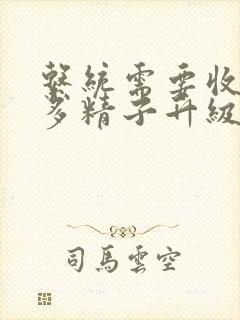 繫統需要收
多精子升級
司馬雲空